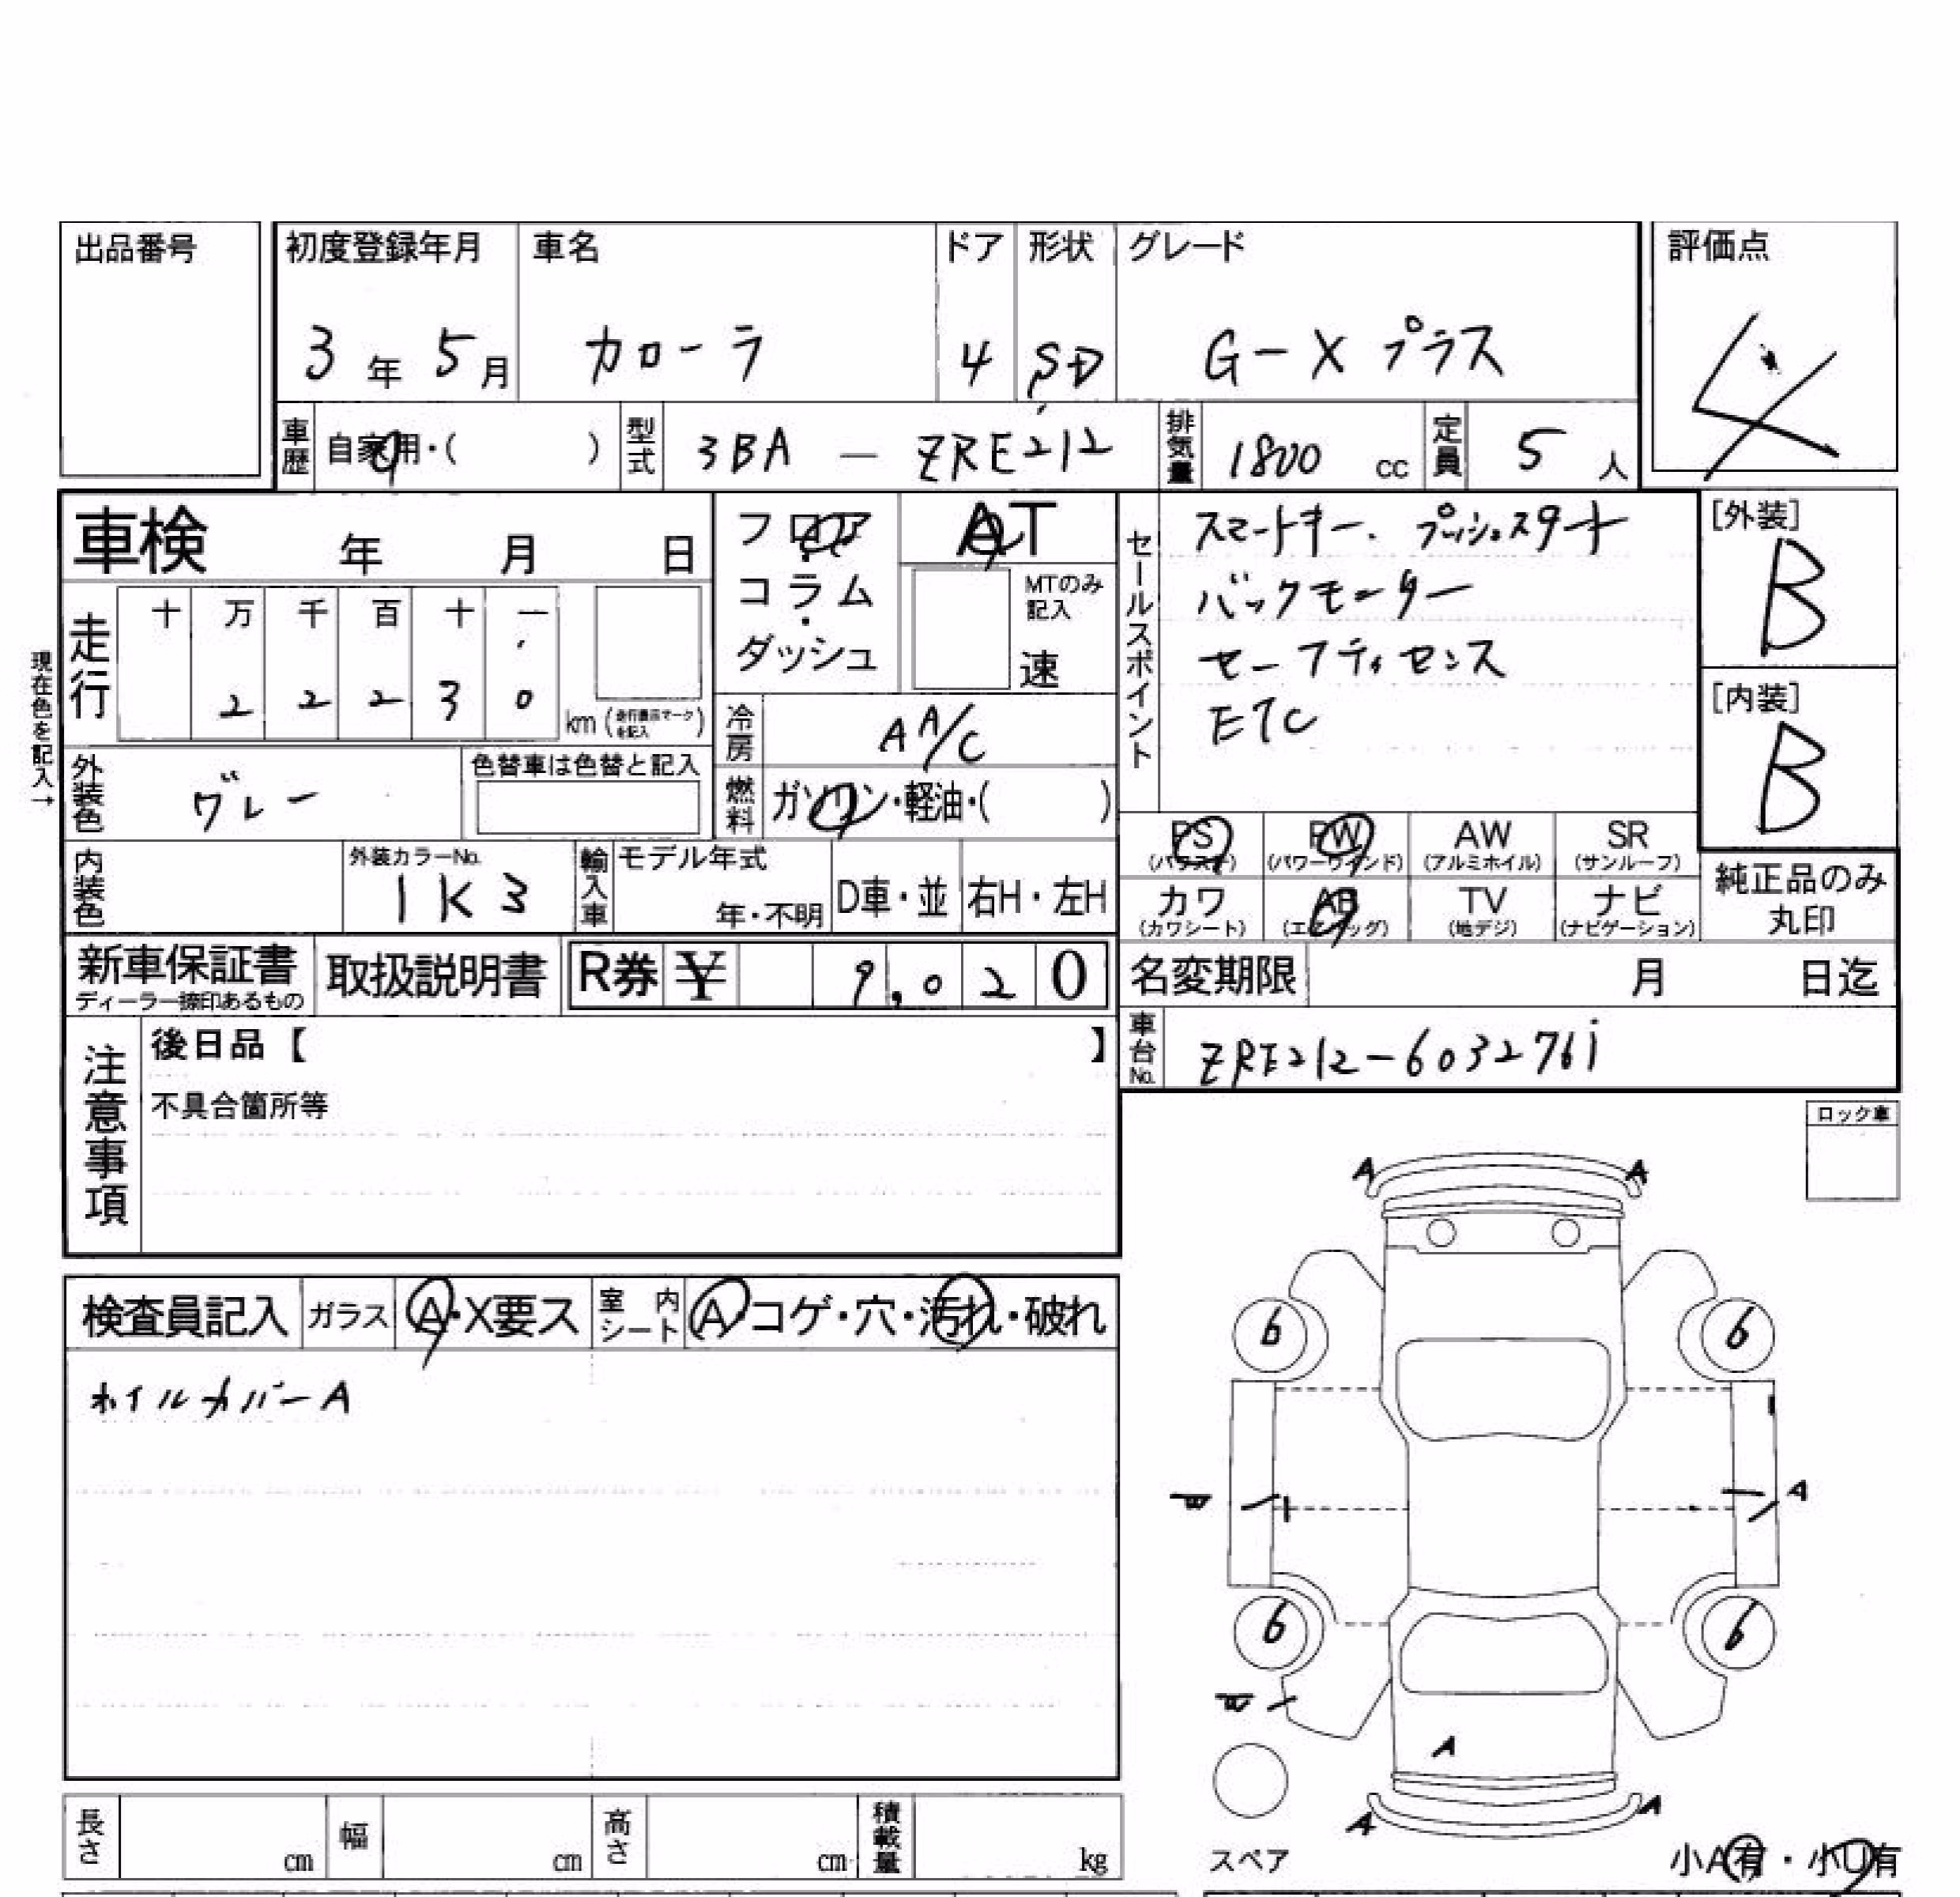 出品番号
初度登録年月 車名 ドア 形状 グレード 評価点
3年 5月 カローラ 4 SD G-X プラス 4
車歴 自家用・( ) 型式 3BA - ZRE212 排気量 1800 cc 定員 5 人
車検 年 月 日
フロア・コラム・ダッシュ
AT
MTのみ記入
速
セールスポイント
スマートキー. プッシュスタート
バックモニター
セーフティセンス
ETC
[外装]
B
[内装]
B
現在色を記入→
走行 十 万 千 百 十 一
2 2 2 3 0 km (走行表示マークを記入)
冷房 AA/C
外装色 グレー 色替車は色替と記入
燃料 ガソリン・軽油・( )
PS AW SR
(パワステ) PW (パワーウインド) (アルミホイル) (サンルーフ)
カワ AB TV ナビ
(カワシート) (エアバッグ) (地デジ) (ナビゲーション)
純正品のみ丸印
内装色 外装カラーNo. 1K3 輸入車 モデル年式 年・不明 D車・並 右H・左H
新車保証書 ディーラー捺印あるもの 取扱説明書 R券 ¥ 9,020
名変期限 月 日迄
車台No. ZRE212-6032761
注意事項
後日品【 】
不具合箇所等
ロック車
検査員記入 ガラス A・X要ス 室内シート A・コゲ・穴・汚れ・破れ
ホイルカバーA
A A
6 6
A
6 6
A
A A
長さ cm 幅 cm 高さ cm 積載量 kg
スペア
小A有・小U有